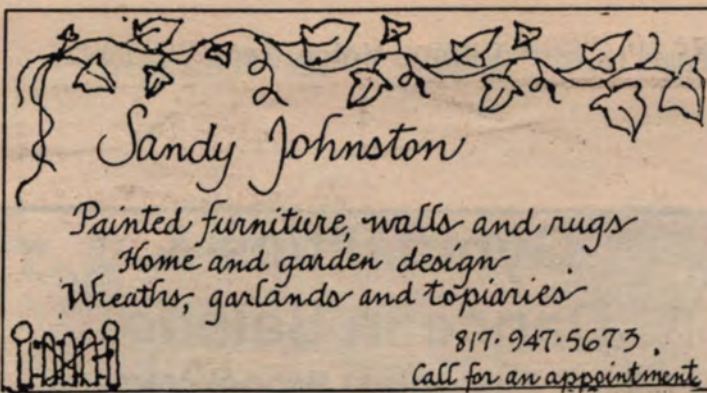 Sandy Johnston
Painted furniture, walls and rugs
Home and garden design
Wreaths, garlands and topiaries
817·947·5673
Call for an appointment